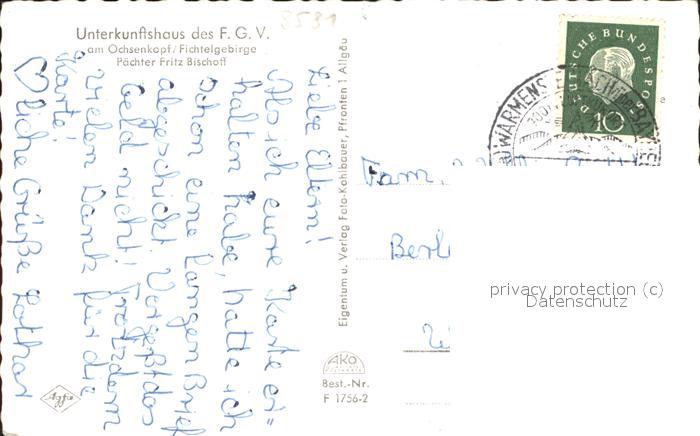 8531
Unterkunftshaus des F. G. V.
am Ochsenkopf/Fichtelgebirge
Pächter Fritz Bischoff
Liebe Eltern!
Als ich eure Karte er=
halten habe, hatte ich
schon eine langen Brief
abgeschickt. Vergeßt das
Geld nicht! Trotzdem
vielen Dank für die
Karte!
♡liche Grüße Lothar
Eigentum u. Verlag Foto-Kohlbauer, Pfronten 1 Allgäu
AKO
Best.-Nr.
F 1756-2
Agfa
DEUTSCHE BUNDESPOST
10
WARMENS
Fam.
Berl
privacy protection (c)
Datenschutz